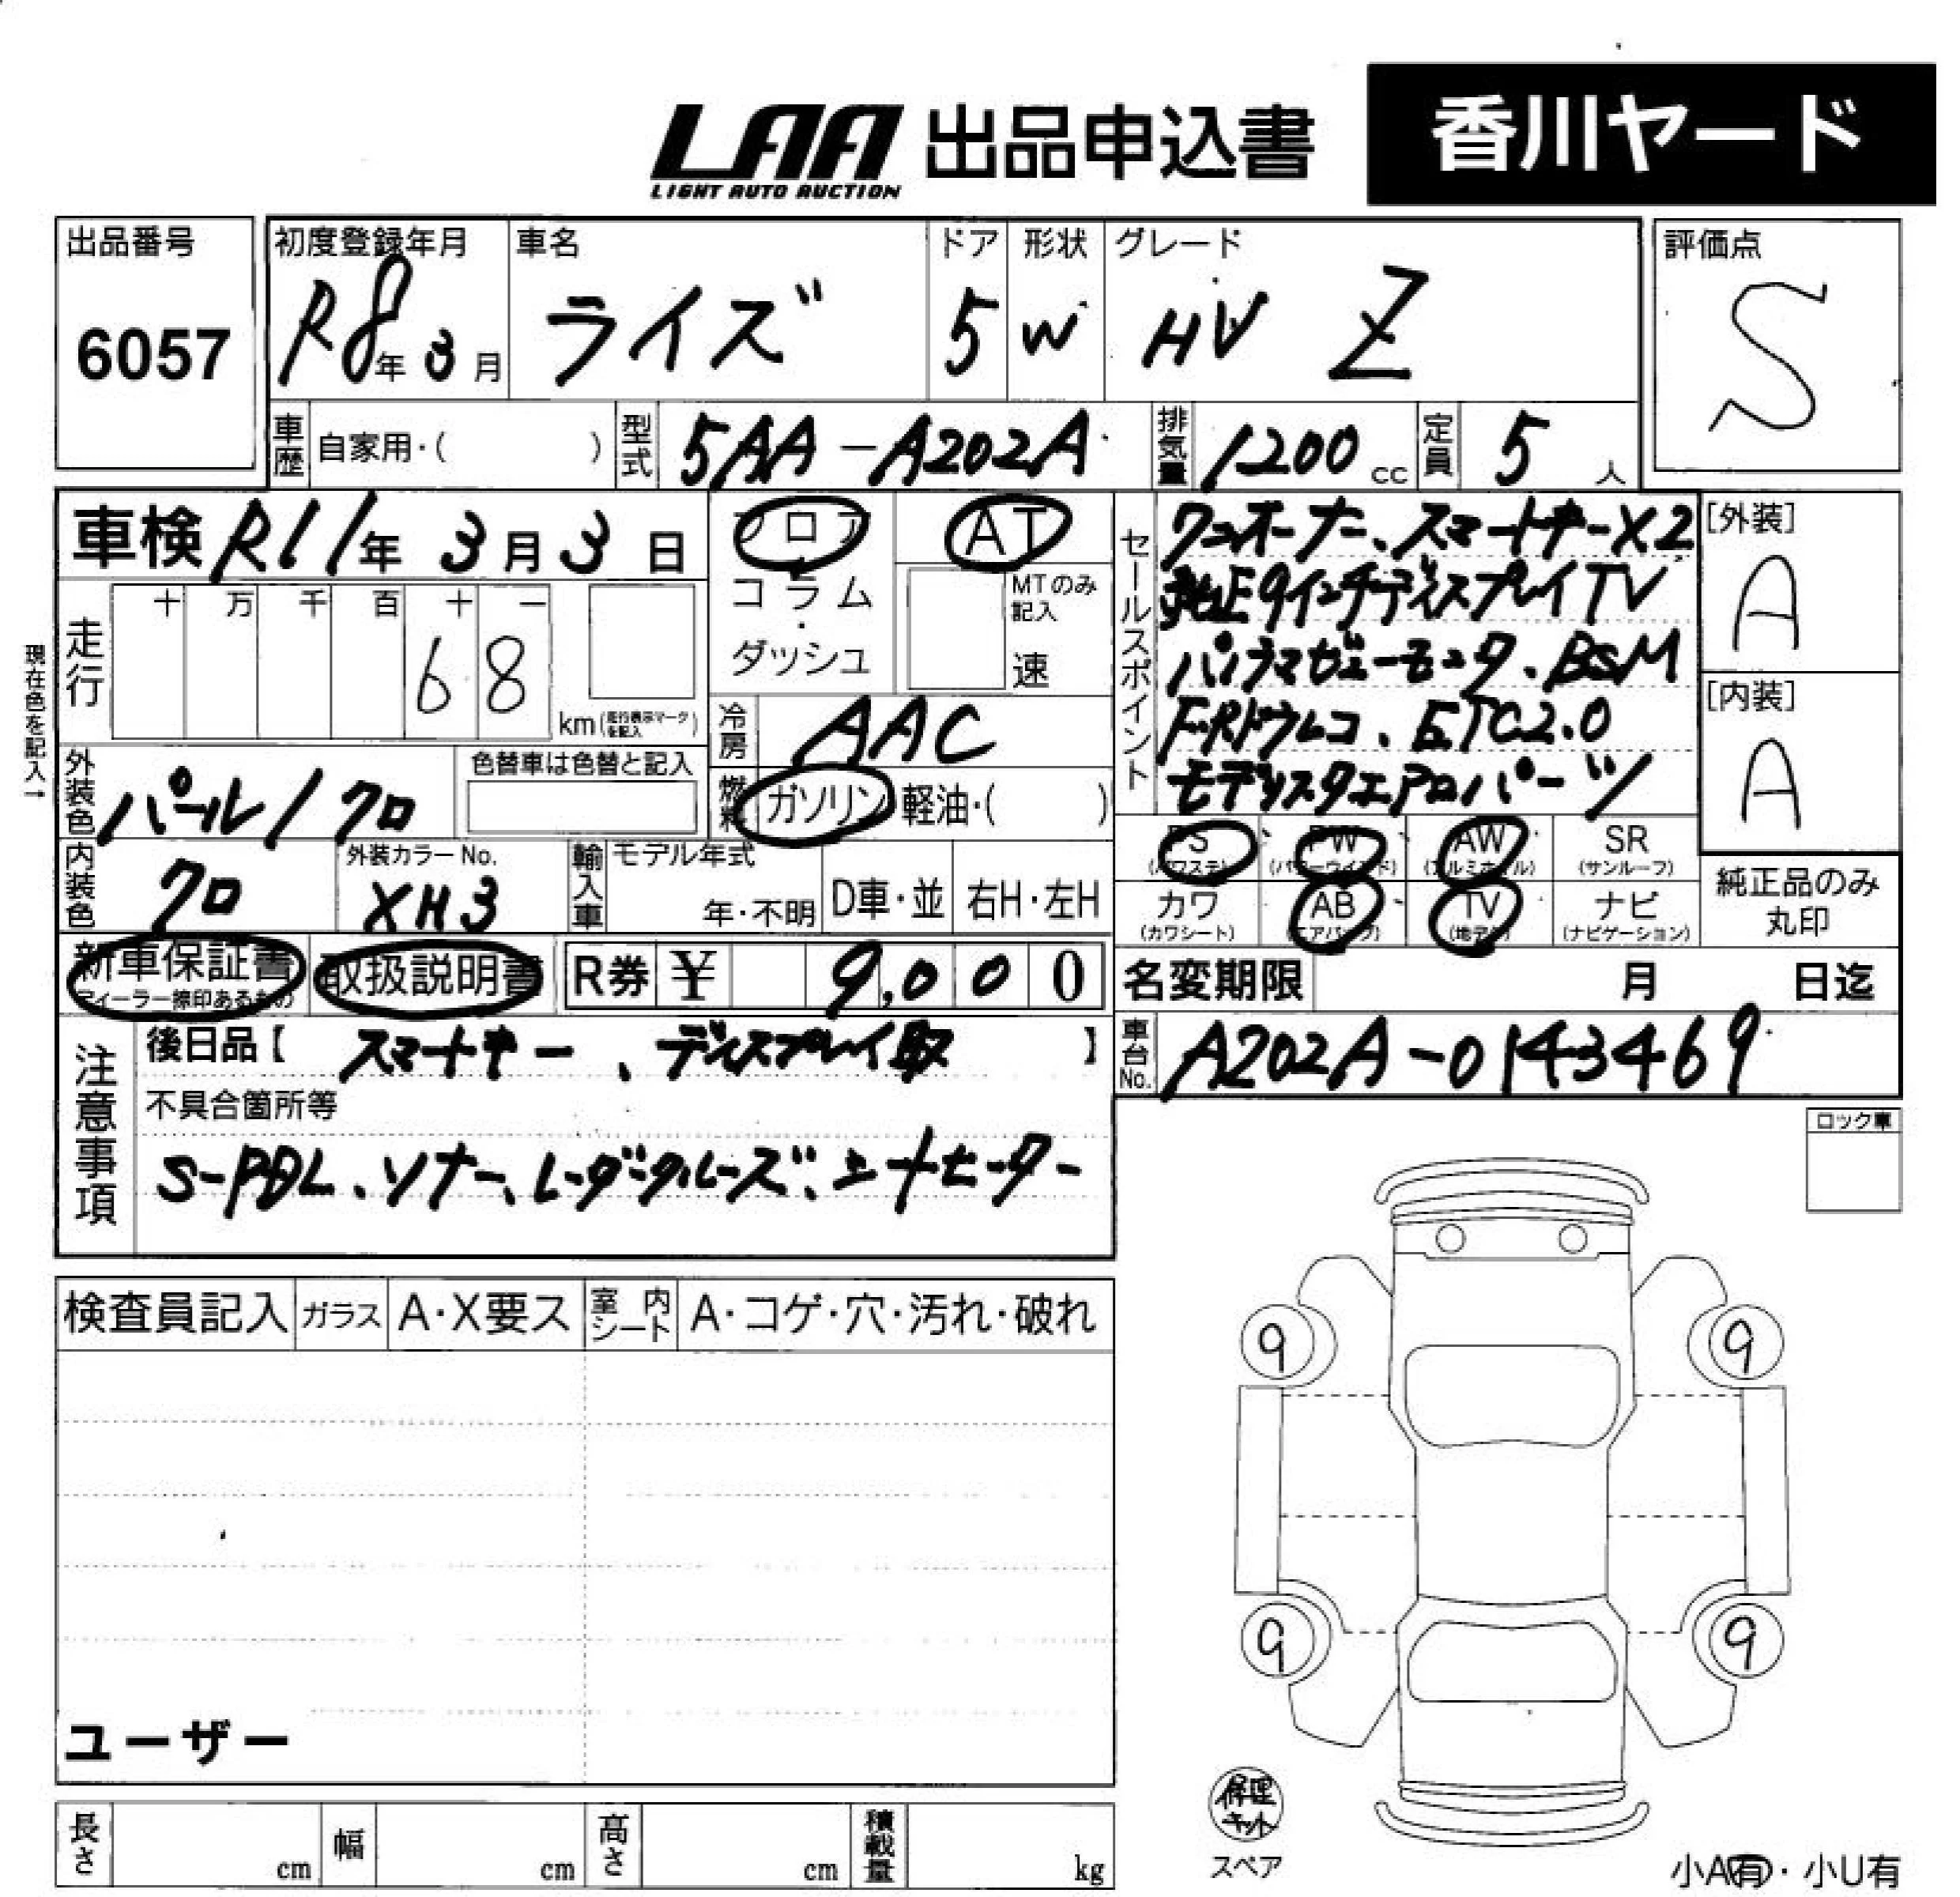 LAA 出品申込書 香川ヤード
LIGHT AUTO AUCTION
出品番号 6057
初度登録年月 R8年3月
車名 ライズ
ドア 5
形状 W
グレード HV Z
評価点 S
車歴 自家用・( )
型式 5AA-A202A
排気量 1200 cc
定員 5 人
車検 R11年 3月 3日
フロア・コラム・ダッシュ
AT
MTのみ記入 速
走行 十 万 千 百 十 一
68 km (走行表示マークを記入)
現在色を記入→
冷房 AAC
燃料 ガソリン・軽油・( )
外装色 パール/クロ
色替車は色替と記入
内装色 クロ
外装カラーNo. XH3
輸入車 モデル年式 年・不明 D車・並 右H・左H
セールスポイント
ワンオーナー、スマートキーX2
純正9インチディスプレイTV
パノラマビューモニタ、BSM
F・Rドラレコ、ETC2.0
モデリスタエアロパーツ
[外装] A
[内装] A
PS (パワステ) PW (パワーウインド) AW (アルミホイル) SR (サンルーフ)
カワ (カワシート) AB (エアバッグ) TV (地デジ) ナビ (ナビゲーション)
純正品のみ丸印
新車保証書 取扱説明書
ディーラー捺印あるもの
R券 ¥ 9,000
名変期限 月 日迄
注意事項
後日品【 スマートキー、ディスプレイ取 】
不具合箇所等
S-PDL、ソナー、レーダークルーズ、シートヒーター
車台No. A202A-0143469
ロック車
検査員記入 ガラス A・X要ス 室内シート A・コゲ・穴・汚れ・破れ
9 9
9 9
ユーザー
修理キット
スペア
長さ cm 幅 cm 高さ cm 積載量 kg
小A有・小U有